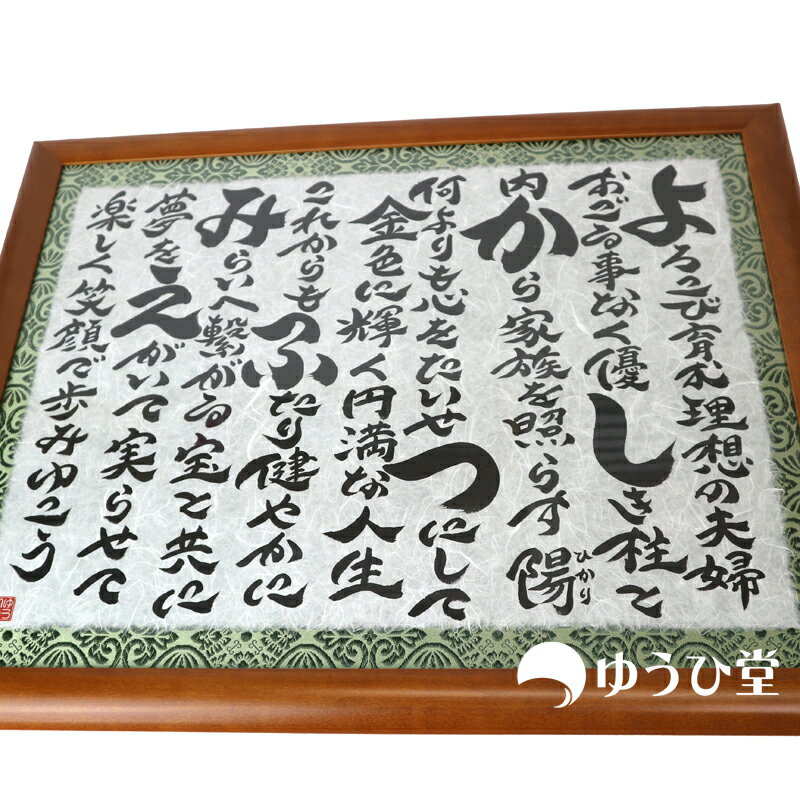 よろこび育み理想の夫婦
おごる事なく優しき柱と
内から家族を照らす陽
ひかり
何よりも心をたいせつにして
金色に輝く円満な人生
これからもふたり健やかに
みらいへ繋がる宝と共に
夢をえがいて実らせて
楽しく笑顔で歩みゆこう
ゆうひ堂